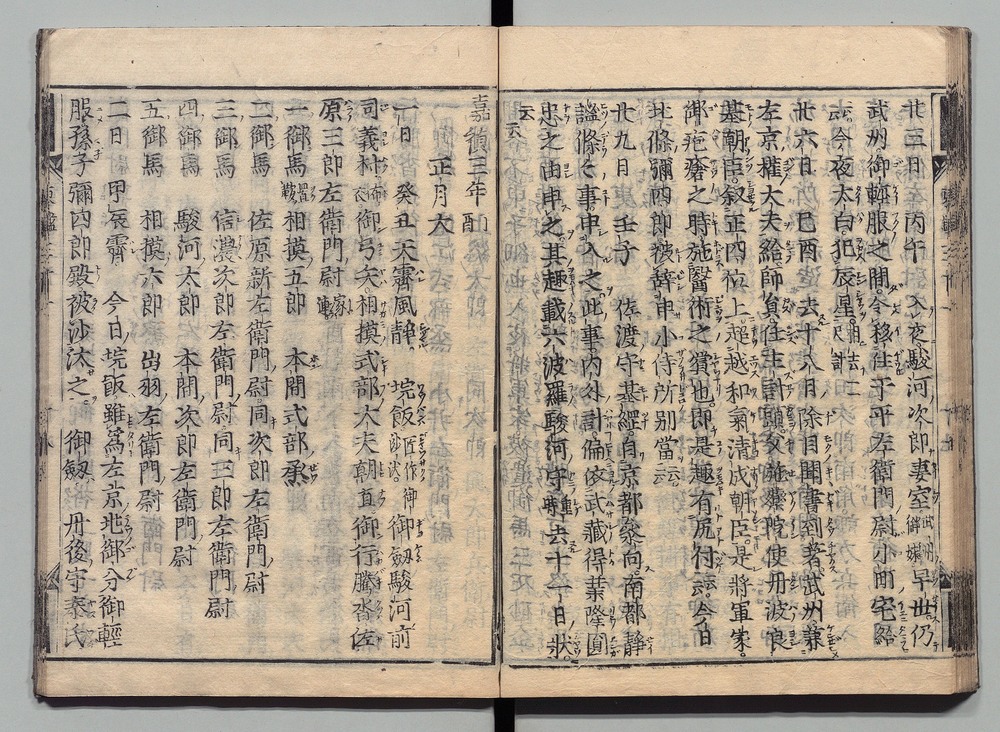 廿三日 丙午 入夜駿河次郎妻室武州御孃早世仍
武州御輕服之間令移住于平左衛門尉小町宅給
云云今夜太白犯辰星相去二尺計
廿六日 己酉 去十八日除目聞書到著武州兼
左京權大夫給師員任主計頭女施藥院使丹波良
基朝臣叙正四位上超越和氣清成朝臣是將軍家
御疱瘡之時施醫術之賞也即是趣有尻付云云今日
北條彌四郎被辞申小侍所別當云云
廿九日 壬子 佐渡守基綱自京都參向南都靜
謐條々事申入之此事内外計偏依武藏得業隆圓
忠之由申之其趣載六波羅駿河守重時去十一日狀
云云
嘉禎三年丁酉
正月大
一日 癸丑天霽風靜 垸飯匠作御沙汰御劔駿河前
司義村布衣御弓矢相摸式部大夫朝直御行騰沓佐
原三郎左衛門尉家連
一御馬置鞍相摸五郎 本間式部丞
二御馬 佐原新左衛門尉同次郎左衛門尉
三御馬 信濃次郎左衛門尉同三郎左衛門尉
四御馬 駿河太郎 本間次郎左衛門尉
五御馬 相摸六郎 出羽左衛門尉
二日 甲寅霽 今日垸飯雖爲左京兆御分御輕
服孫子彌四郎殿被沙汰之 御劔 丹後守泰氏